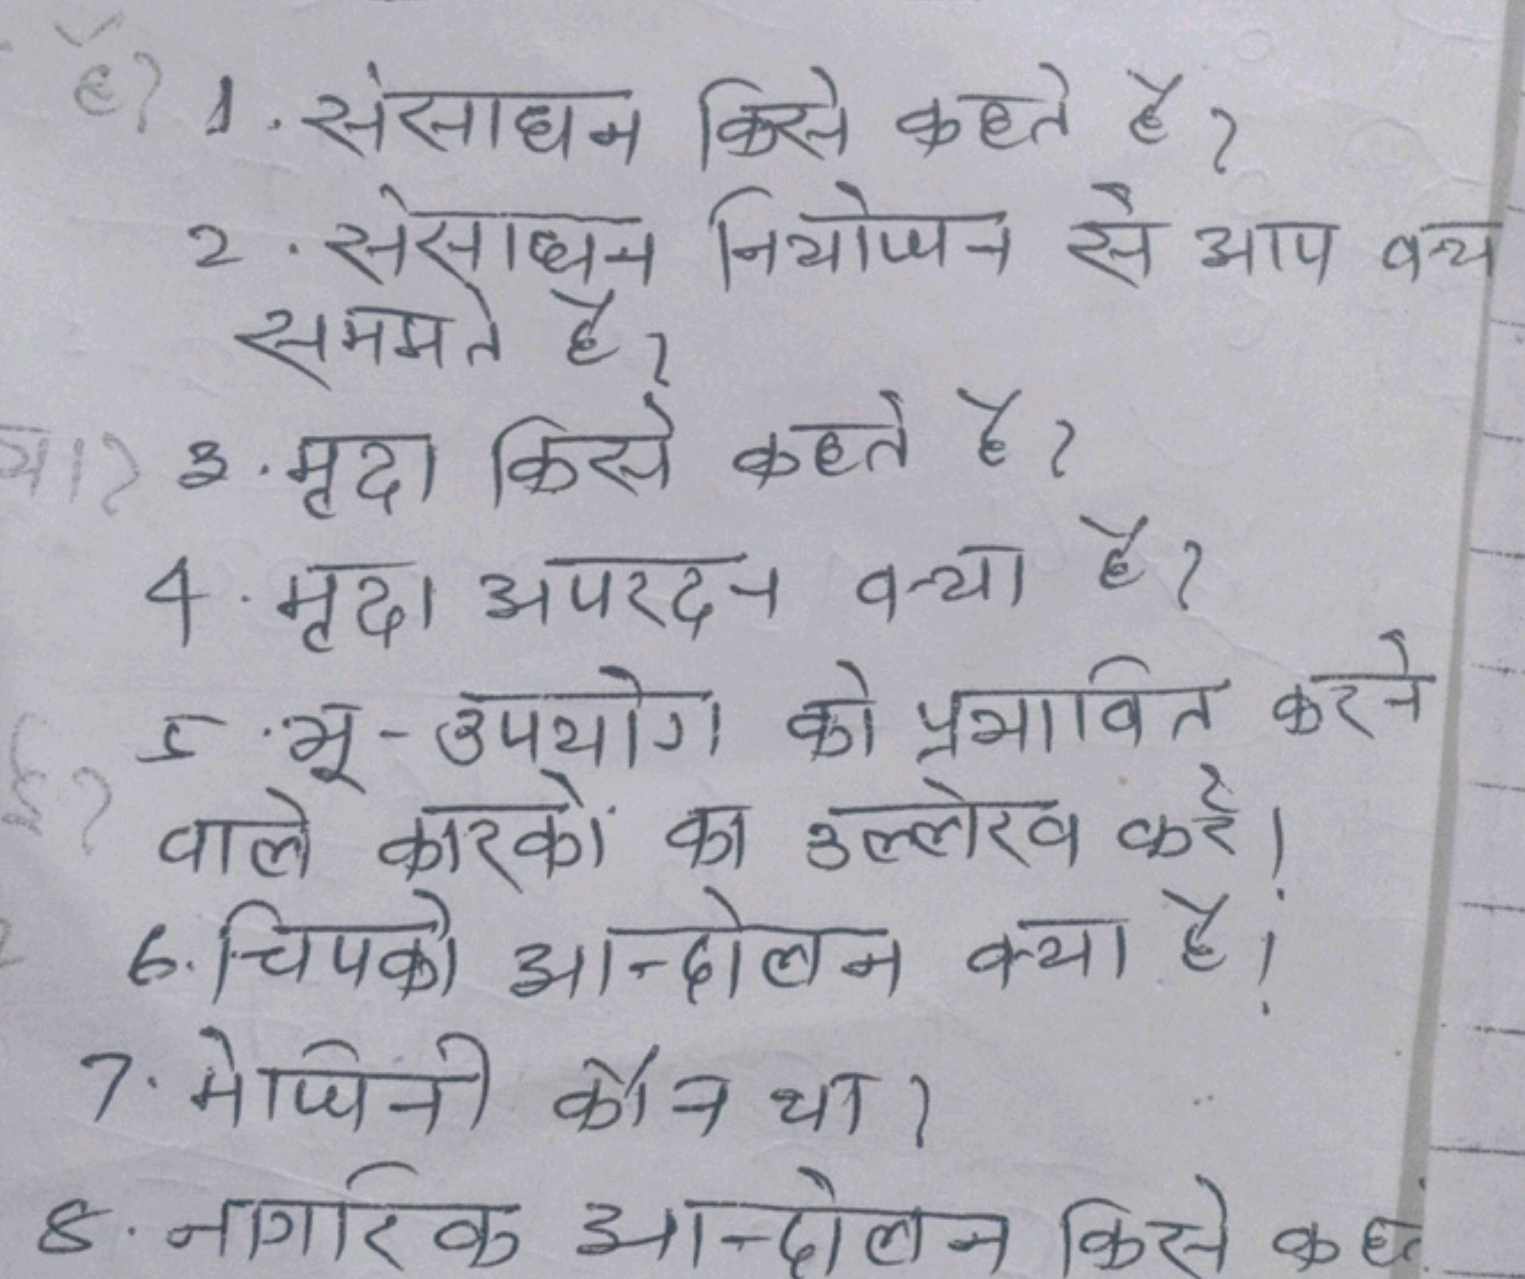 1. संसाधन किसे कहते है?
2. संसाधन नियोजन से आप क्य
समझते है?
3. मृदा किसे कहते है?
4. मृदा अपरदन क्या है?
5. भू-उपयोग को प्रभावित करने
वाले कारकों का उल्लेख करें।
6. चिपको आन्दोलन क्या है।
7. मेजिनी कौन था?
8. नागरिक आन्दोलन किसे कहते